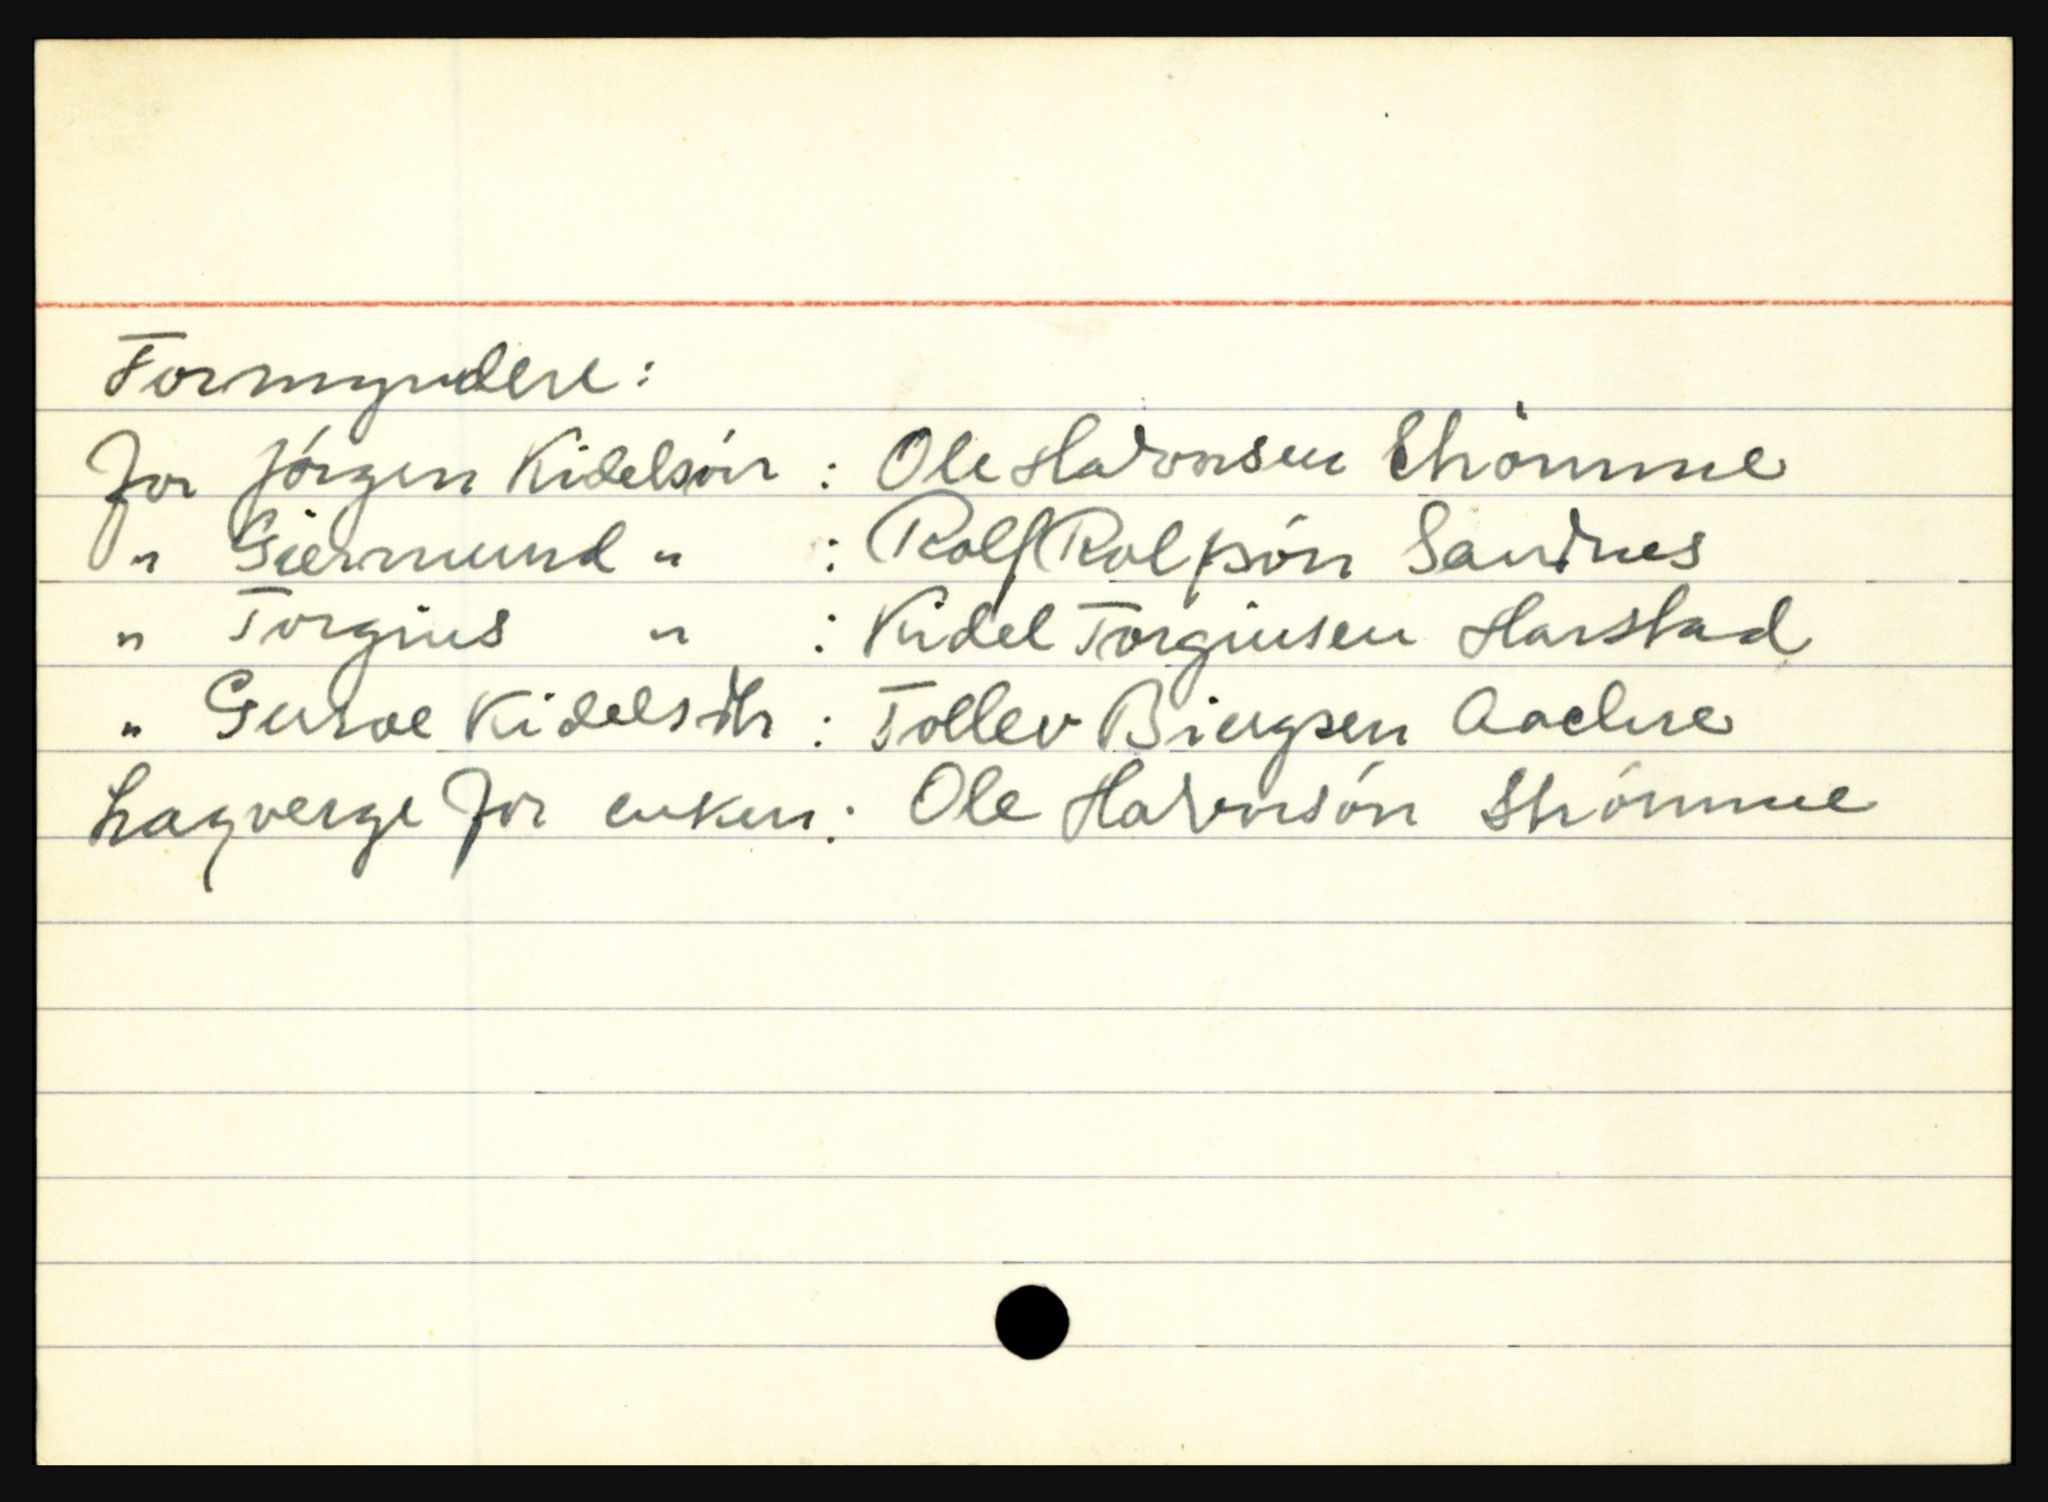 Formyndere:
for Jörgen Kidelsön : Ole Halvorsen Strömme
" Giermund " : Rolf Rolfsön Sandnes
" Torgius " : Kidel Torgiusen Harstad
" Guroe Kidelsdtr : Tollev Biergsen
Lagverge for enken : Ole Halvorsön Strömme